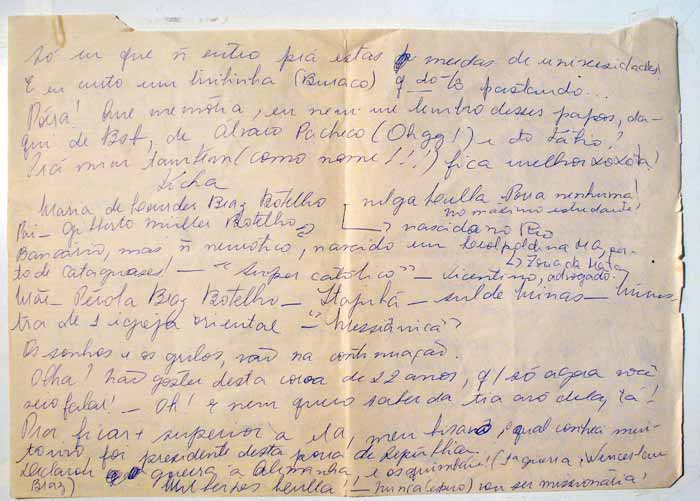 Só eu que ñ entro prá estas mudas de universidades!
E eu curto um (Buraco) q pastando...
Pôxa! Que memória, eu nem me lembro desses papos, da-
qui de Bot, de Álvaro Pacheco (Ohgg!) e do Fábio!
Prá mim também (como nome!!!) fica melhor xoxota!
Ficha
Maria de Lourdes Braz Botelho nenhuma!
no máximo estudante!
Pai - Gilberto Müller Botelho nascida no Rio
Bancário, mas ñ nemótico, nascido em Leopoldina MG, per-
to de Cataguases! - "super católico" - vicentino, advogado.
Zona da Mata
Mãe - Pérola Braz Botelho - Itajubá - sul de Minas - Minis
tra de 1 igreja oriental - "Messiânica"
Os sonhos e os grilos, vão na continuação.
Olha! Não gostei desta coroa de 22 anos, q/ só agora você
veio falar! - Oh! E nem quero saber da tia avó dela, tá!
Prá ficar + superior a ela, meu bisavô, qual conheci mui-
to novo, foi presidente desta porra de República
Declarou guerra à Alemanha! (1ª guerra, Wenceslau
Braz) ser missionária!